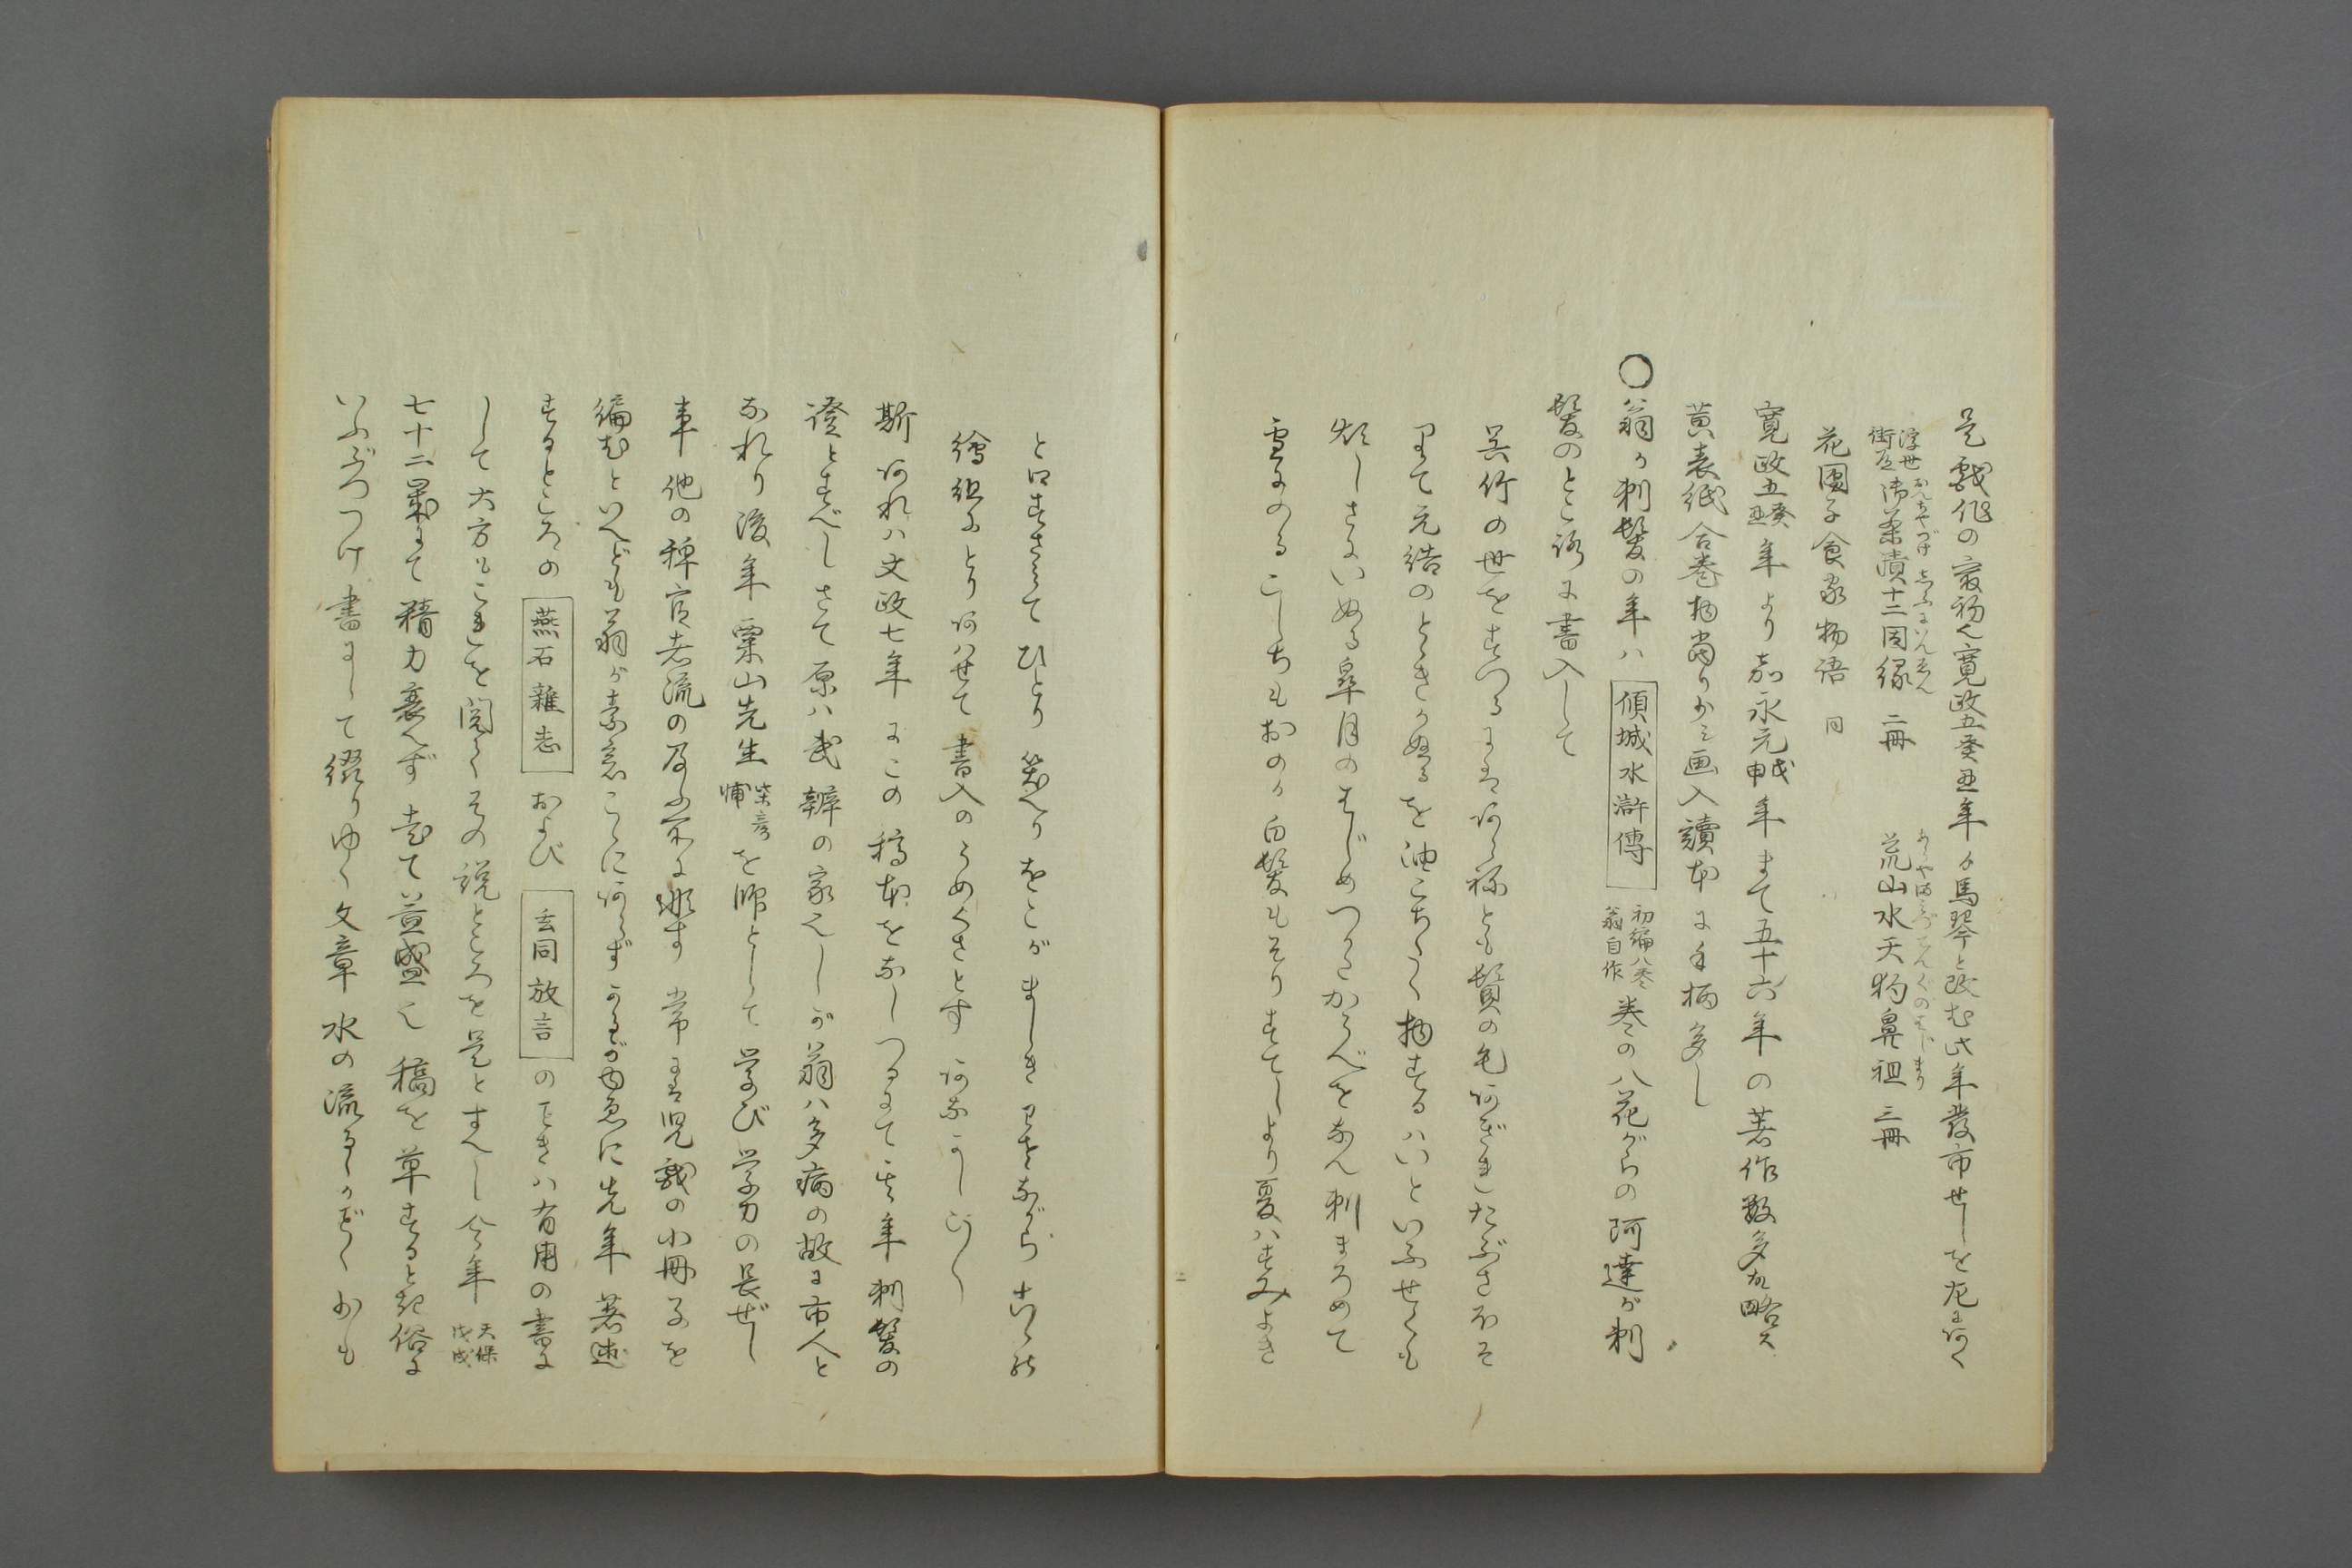 是戯作の最初也寛政五癸丑年ゟ馬琴と改む此年發市せしを左にあぐ
浮世街道 御茶漬十二因縁 二冊 荒山水天狗鼻祖 三冊
おんちやづけ じふにいんえん あらやまみづてんぐのはじまり
花團子食家物語 同
寛政五癸丑年より嘉永元戊申年まて五十六年の著作数多故略ス
黄表紙合巻物當り少シ画入讀本に手柄多し
〇翁か剃髪の年ハ 傾城水滸傳 初編八巻翁自作 巻の八花がらの阿達が剃
髪のところに書入して
呉竹の世をすつるにはあらねとも鬢の毛あぎれたぶさほそ
りて元結のとゞきかぬるを油こちたく物するハいといふせくも
煩しさにいぬる皐月のはじめつかたかうべをなん剃まろめて
雪にのるこしちもおのか白髪もそりすてしより夏ハすみよき
と口ずさみて ひとり笑へりをこがましきわざながらこゝの
繪組にとりあはせて書入のうめくさとす あなかしこ〳〵
斯あれハ文政七年にこの稿本をなしつるにて此年剃髪の
證とすべしさて原ハ武辨の家也しが翁ハ多病の故に市人と
なれり後年栗山先生 柴彦輔 を師として学び学力の長ぜし
事他の稗官者流の及ふ処に非す常には児戯の小冊子を
編むといへども翁が素意こゝにあらずかるがゆゑに先年著述
するところの 燕石雜志 および 玄同放言 のごときハ有用の書に
して大方もこれを閲してその説ところを是とすへし今年 天保戊戌
七十二歳にて精力衰へず老て益盛也稿を草すると紀俗に
いふぶつつけ書にして綴りゆく文章水の流るゝがごとく少も